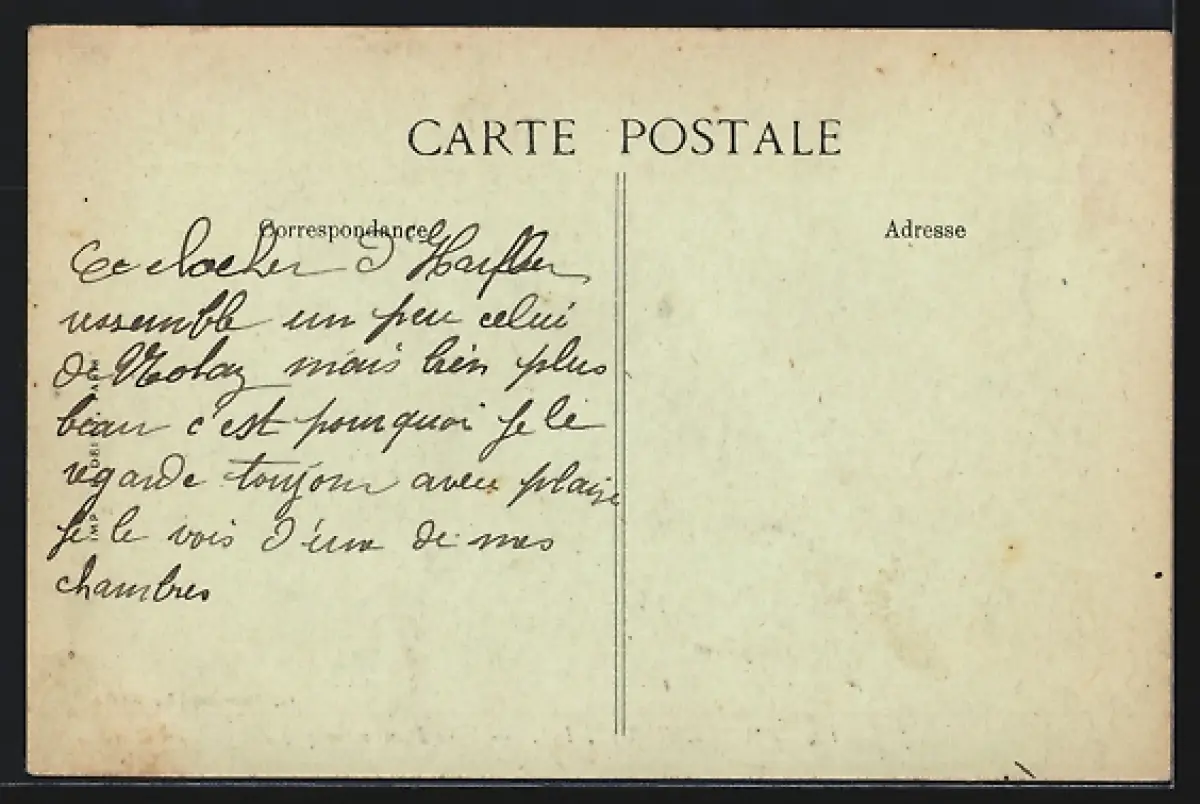 CARTE POSTALE
Correspondance
Adresse
Ce clocher d'Harfleur
ressemble un peu celui
de Nolay mais bien plus
beau c'est pourquoi je le
regarde toujour avec plaisir
je le vois d'une de mes
chambres
IMP